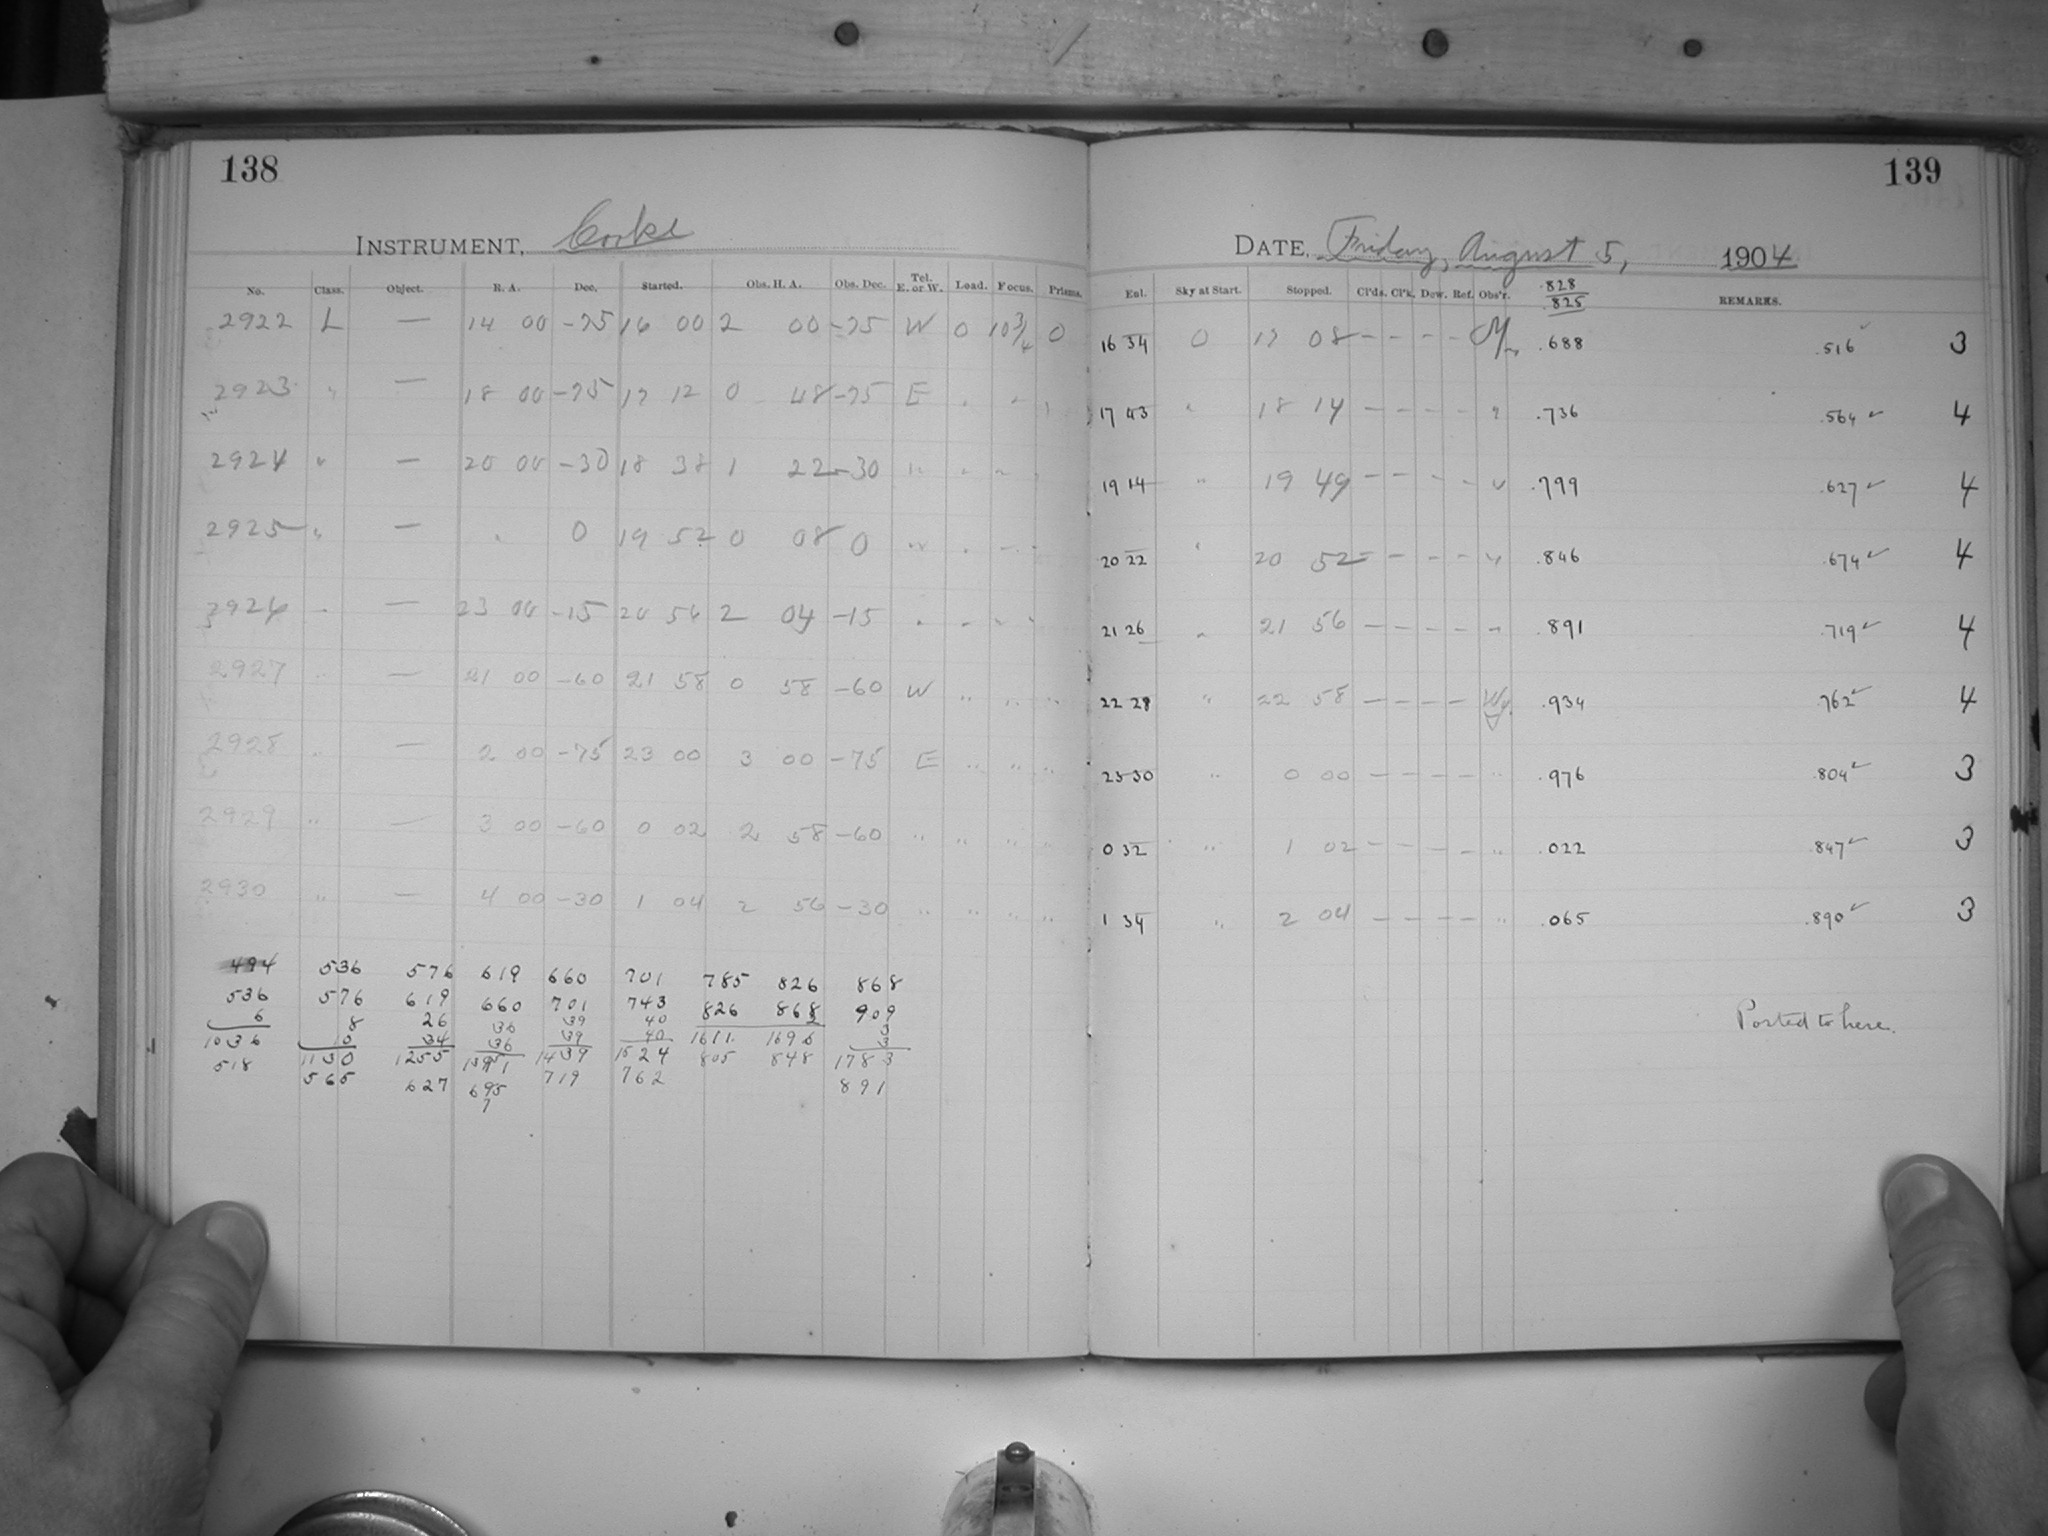 138
INSTRUMENT, Cooke
No. Class. Object. R. A. Dec. Started. Obs. H. A. Obs. Dec. Tel. E. or W. Load. Focus. Prisms.
2922 L — 14 00 -75 16 00 2 00 -75 W 0 10 3/4 0
2923 " — 18 00 -75 17 12 0 48 -75 E " " "
2924 " — 20 00 -30 18 38 1 22 -30 " " " "
2925 " — " 0 19 52 0 08 0 " " " "
2926 " — 23 00 -15 20 56 2 04 -15 " " " "
2927 " — 21 00 -60 21 58 0 58 -60 W " " "
2928 " — 2 00 -75 23 00 3 00 -75 E " " "
2929 " — 3 00 -60 0 02 2 58 -60 " " " "
2930 " — 4 00 -30 1 04 2 56 -30 " " " "
494 536 576 619 660 701 785 826 868
536 576 619 660 701 743 826 868 909
6 8 26 36 39 40 2 3
10 34 36 39 40 3
1036 1130 1255 1391 1439 1524 1611 1696 1783
518 565 627 695 719 762 805 848 891
7
139
DATE, Friday, August 5, 1904
Ent. Sky at Start. Stopped. Cl'ds. Cl'k. Dew. Ref. Obs'r. .828 .825 REMARKS.
16 34 0 17 08 — — — — .688 .516 ✓ 3
17 43 " 18 14 — — — — " .736 .564 ✓ 4
19 14 " 19 49 — — — — " .799 .627 ✓ 4
20 22 " 20 52 — — — — " .846 .674 ✓ 4
21 26 " 21 56 — — — — " .891 .719 ✓ 4
22 28 " 22 58 — — — — .934 .762 ✓ 4
23 30 " 0 00 — — — — " .976 .804 ✓ 3
0 32 " 1 02 — — — — " .022 .847 ✓ 3
1 34 " 2 04 — — — — " .065 .890 ✓ 3
Posted to here.